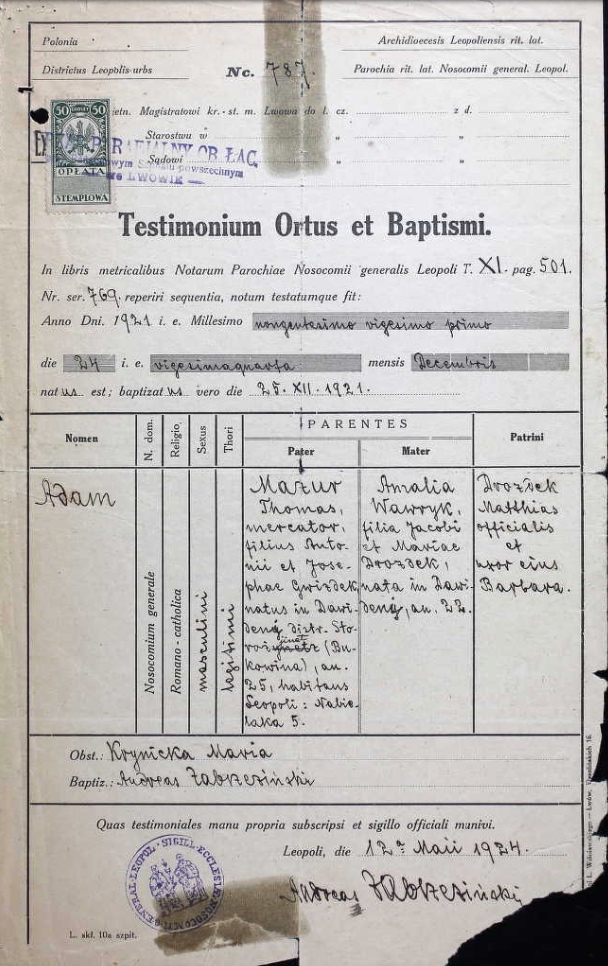 Polonia
Archidioecesis Leopoliensis rit. lat.
Districtus Leopolis-urbs
Nc. 787.
Parochia rit. lat. Nosocomii general. Leopol.
50 50
Świetn. Magistratowi kr.-st. m. Lwowa do l. cz. z d.
Starostwu w " "
Sądowi " "
OPŁATA
STEMPLOWA
URZĄD PARAFIALNY OB. ŁAC.
powszechnym
we LWOWIE
Testimonium Ortus et Baptismi.
In libris metricalibus Notarum Parochiae Nosocomii generalis Leopoli T. XI. pag. 501.
Nr. ser. 769. reperiri sequentia, notum testatumque fit:
Anno Dni. 1921 i. e. Millesimo nongentesimo vigesimo primo
die 24 i. e. vigesimaquarta mensis Decembris
natus est; baptizatus vero die 25. XII. 1921.
Nomen
N. dom.
Religio
Sexus
Thori
PARENTES
Pater
Mater
Patrini
Adam
Nosocomium generale
Romano-catholica
masculini
legitimi
Mazur
Thomas,
mercator,
filius Anto-
nii et Jose-
phae Gwizdek
natus in Dawi-
deny distr. Sto-
(Bu-
kowina), an.
25, habitans
Leopoli: Nabie-
laka 5.
Amalia
Wawryk,
filia Jacobi
et Mariae
Drozdek,
nata in Dawi-
deny, an. 22.
Drozdek
Matthias
officialis
et
uxor eius
Barbara.
Obst.: Krynicka Maria
Baptiz.: Andreas Zabrzeziński
Quas testimoniales manu propria subscripsi et sigillo officiali munivi.
Leopoli, die 12ª Maii 1924.
Andreas Zabrzeziński
L. skł. 10a szpit.